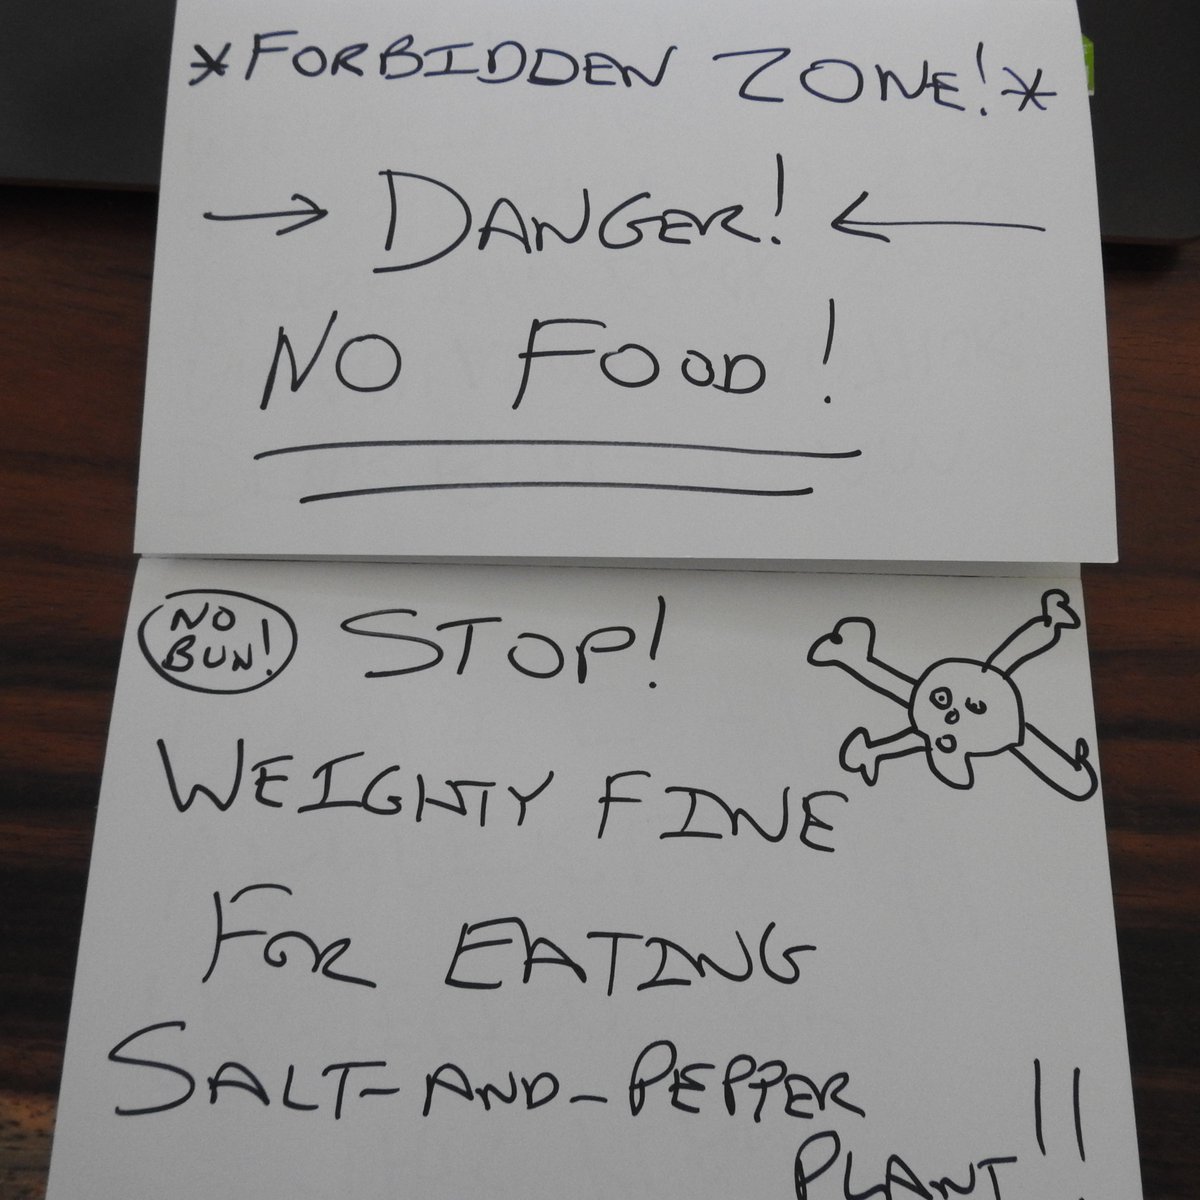 *FORBIDDEN ZONE!*
→ DANGER! ←
NO FOOD!
NO
BUN!
STOP!
WEIGHTY FINE
FOR EATING
SALT-AND-PEPPER
PLANT!!